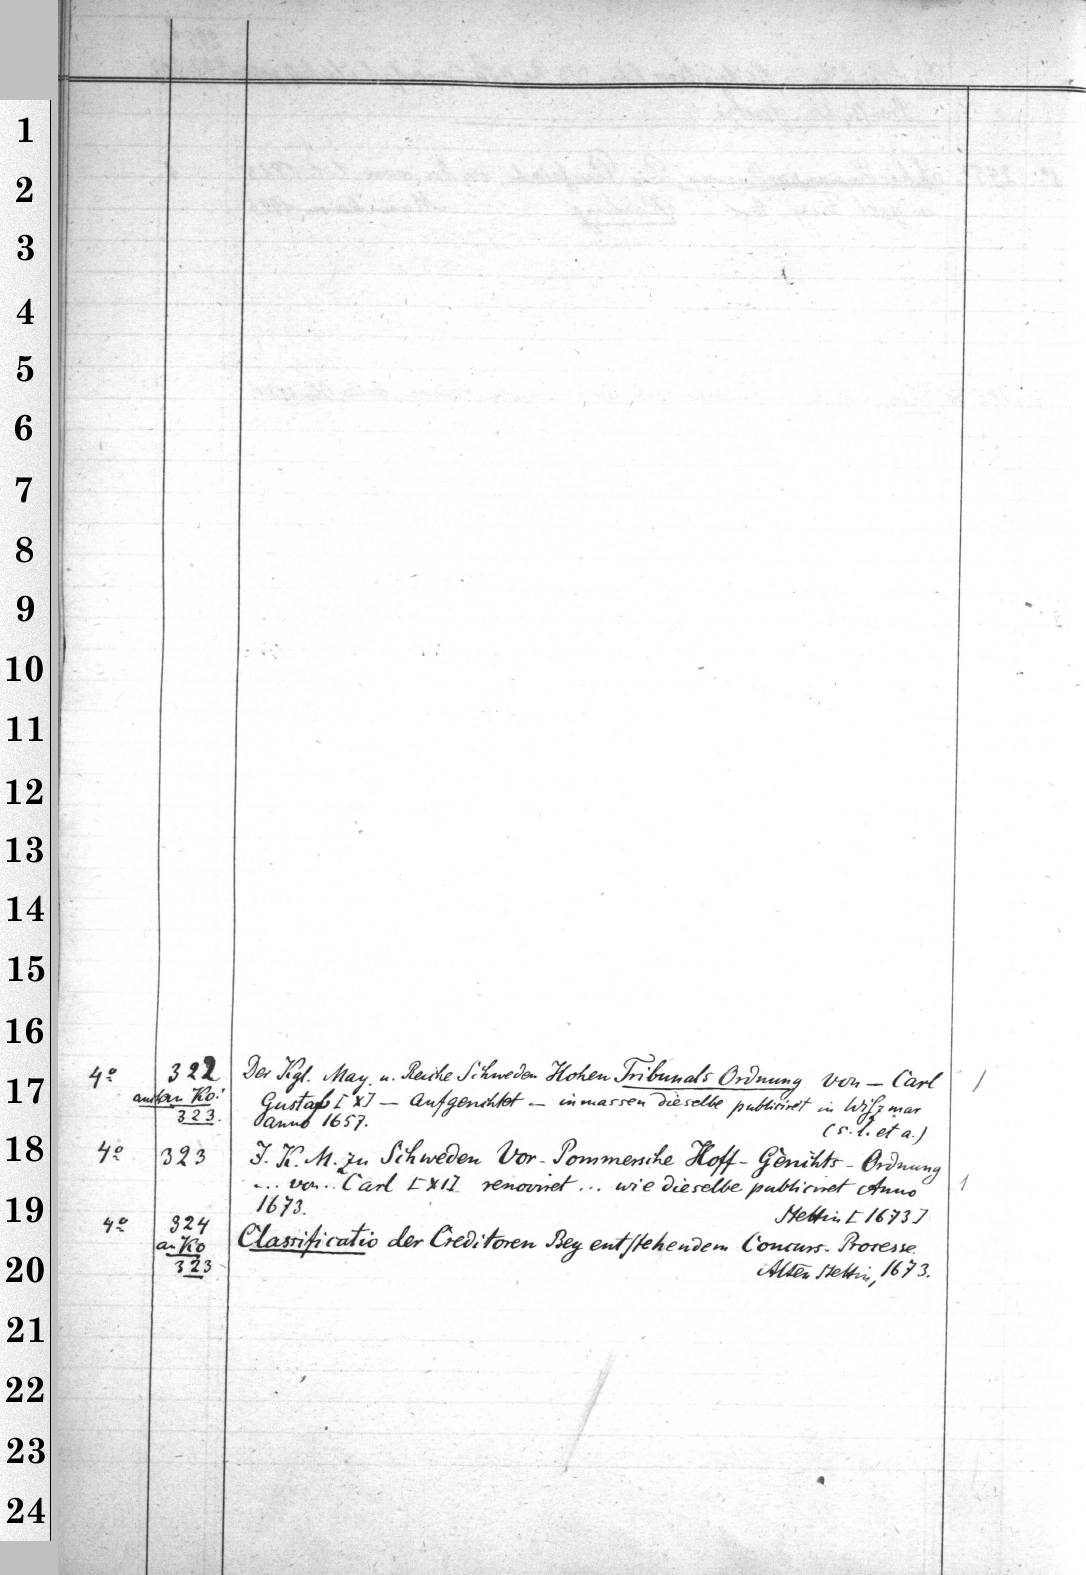 1
2
3
4
5
6
7
8
9
10
11
12
13
14
15
16
17
18
19
20
21
22
23
24
4º 322 Der Kgl. May. u. Reiche Schweden Hohen Tribunals Ordnung von – Carl 1
an Ko: Gustaf [X] – aufgerichtet – inmassen dieselbe publiciret in Wißmar
323. anno 1657. (s. l. et a.)
4º 323 I. K. M. zu Schweden Vor-Pommersche Hoff-Gerichts-Ordnung
... von .. Carl [XI] renoviret ... wie dieselbe publiciret Anno 1
1673. Stettin [1673]
4º 324 Classificatio der Creditoren Bey entstehendem Concurs-Processe
an Ko
323 Alten Stettin, 1673.